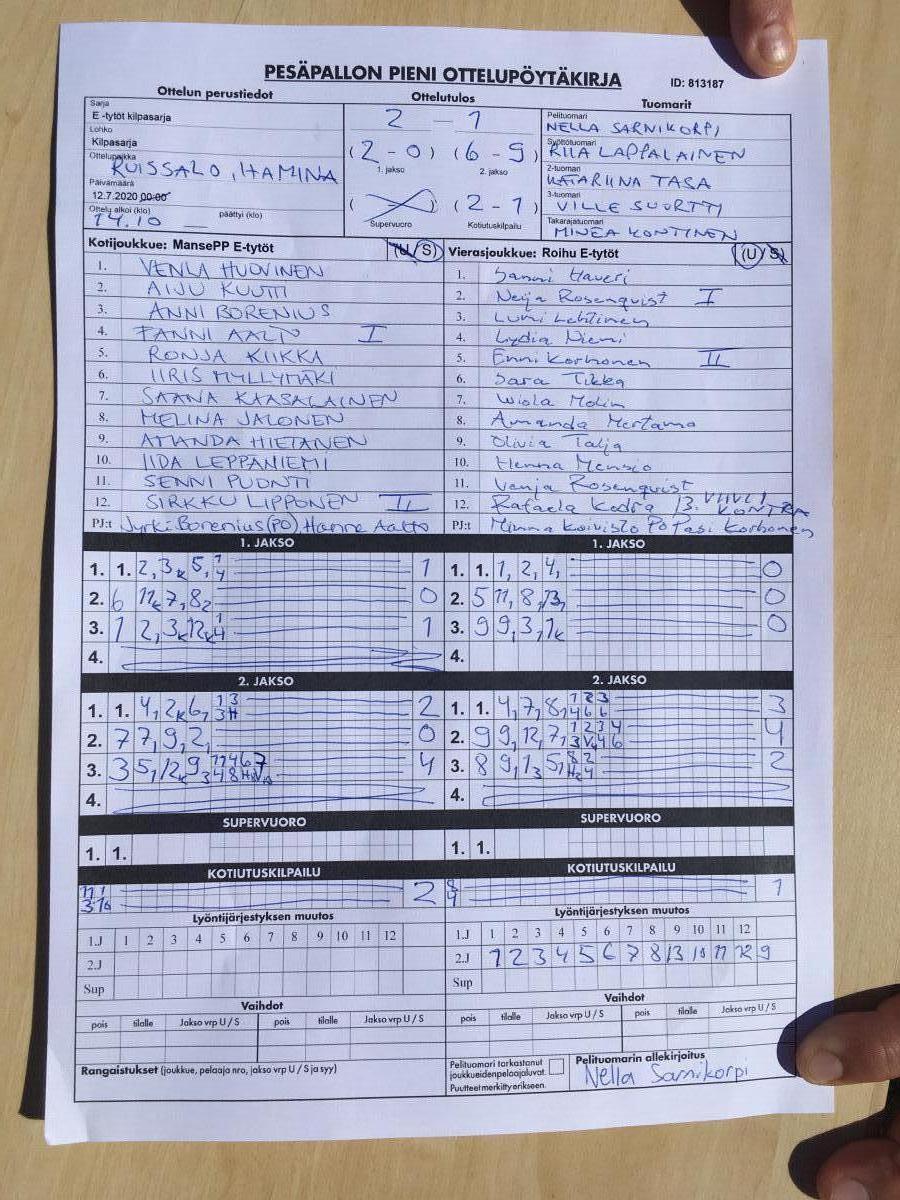 PESÄPALLON PIENI OTTELUPÖYTÄKIRJA
ID: 813187
Ottelun perustiedot
Ottelutulos
Tuomarit
Sarja
E -tytöt kilpasarja
Lohko
Kilpasarja
Ottelupaikka
RUISSALO, HAMINA
Päivämäärä
12.7.2020 00:00
Ottelu alkoi (klo)
päättyi (klo)
14.10
2 - 1
(2 - 0) (6 - 9)
1. jakso
2. jakso
( ) (2 - 1)
Supervuoro
Kotiutuskilpailu
Pelituomari
NELLA SARNIKORPI
Syöttötuomari
RIIA LAPPALAINEN
2-tuomari
KATARIINA TASA
3-tuomari
VILLE SUORTTI
Takarajatuomari
MINEA KONTINEN
Kotijoukkue: MansePP E-tytöt (U/S)
1. VENLA HUOVINEN
2. AIJU KUUTTI
3. ANNI BORENIUS
4. FANNI AALTO I
5. RONJA KIIKKA
6. IIRIS MYLLYMÄKI
7. SAANA KAASALAINEN
8. MELINA JALONEN
9. AMANDA HIETANEN
10. IIDA LEPPÄNIEMI
11. SENNI PUONTI
12. SIRKKU LIPPONEN II
PJ:t Jyrki Borenius (PO) Hanne Aalto
Vierasjoukkue: Roihu E-tytöt (U/S)
1. Sanni Haveri
2. Neija Rosenqvist I
3. Lumi Lehtinen
4. Lydia Niemi
5. Enni Korhonen II
6. Sara Tikka
7. Wiola Molin
8. Amanda Mertamo
9. Olivia Talja
10. Henna Mensio
11. Venja Rosenqvist
12. Rafaela Kodra 13. VIIVI KONTRA
PJ:t Minna Koivisto PO Pasi Korhonen
1. JAKSO
1. 1. 2, 3K 5, 1 4 1
2. 6 11K 7, 8 2 0
3. 1 2, 3K 12K 1 4 1
4.
1. JAKSO
1. 1. 1, 2, 4, 0
2. 5 11, 8, 13, 0
3. 9 9, 3, 1K 0
4.
2. JAKSO
1. 1. 4, 2K 6, 1 3 3 H 2
2. 7 7, 9, 2, 0
3. 3 5, 12K 9 4
4.
2. JAKSO
1. 1. 4, 7, 8, 1 2 3 4 6 6 3
2. 9 9, 12, 7, 1 2 3 4 3 V 4 6 4
3. 8 9, 1 3 5, 8 2 H 2 4 2
4.
SUPERVUORO
1. 1.
SUPERVUORO
1. 1.
KOTIUTUSKILPAILU
2
KOTIUTUSKILPAILU
8 4 1
Lyöntijärjestyksen muutos
1.J 1 2 3 4 5 6 7 8 9 10 11 12
2.J
Sup
Lyöntijärjestyksen muutos
1.J 1 2 3 4 5 6 7 8 9 10 11 12
2.J 1 2 3 4 5 6 7 8 13 10 11 12 9
Sup
Vaihdot
pois tilalle Jakso vrp U / S pois tilalle Jakso vrp U / S
Vaihdot
pois tilalle Jakso vrp U / S pois tilalle Jakso vrp U / S
Rangaistukset (joukkue, pelaaja nro, jakso vrp U / S ja syy)
Pelituomari tarkastanut
joukkueiden pelaajaluvat.
Puutteet merkitty erikseen.
Pelituomarin allekirjoitus
Nella Sarnikorpi